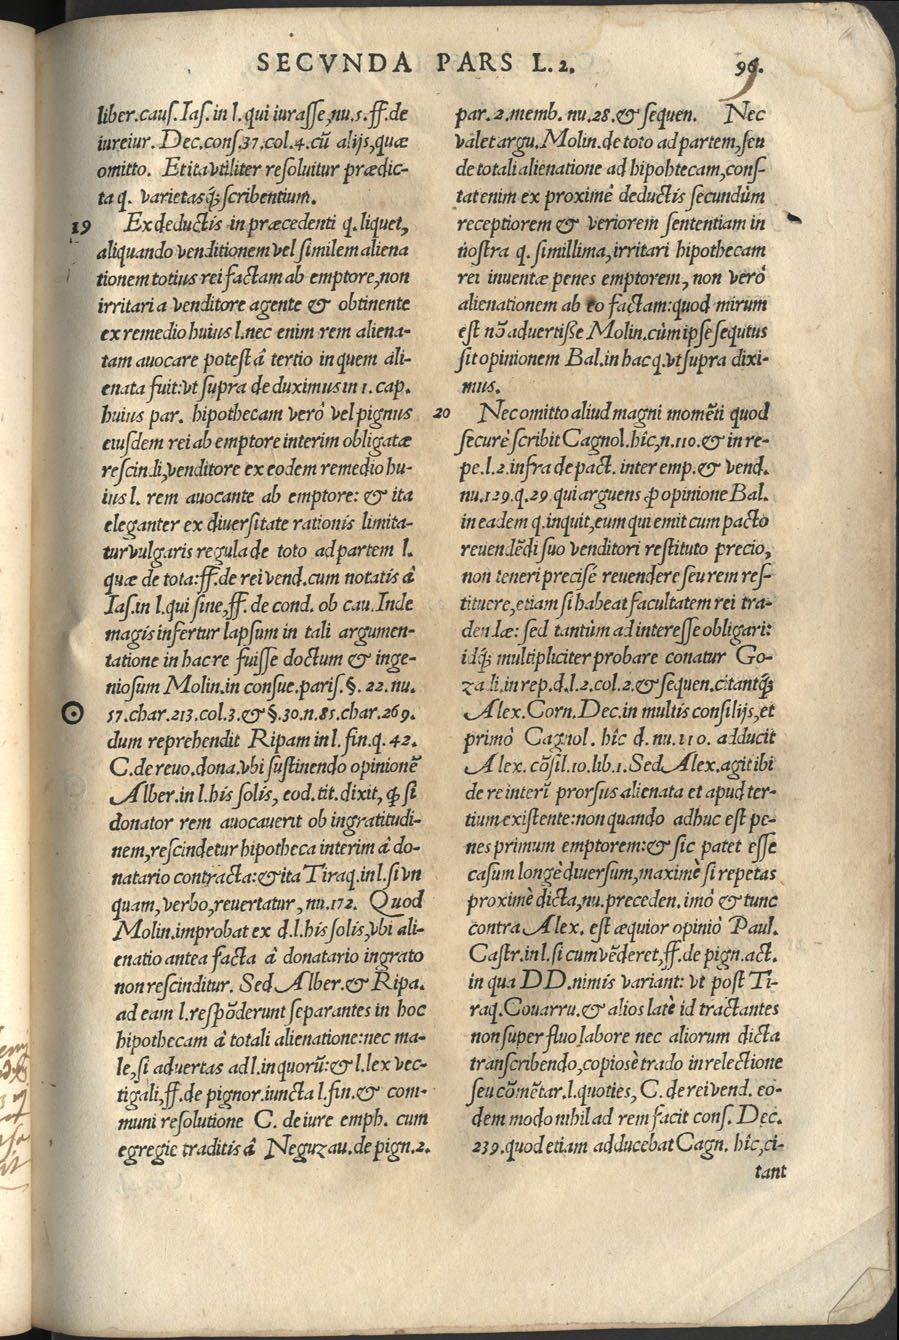 SECVNDA PARS L.2.
96.
liber.cauſ.Iaſ.in l.qui iuraſſe,nu.5.ff.de
iureiur. Dec.conſ.37.col.4.cū alijs,quæ
omitto. Et ita vtiliter reſoluitur prædic-
ta q. varietasq́; ſcribentium.
19 Ex deductis in præcedenti q.liquet,
aliquando venditionem vel ſimilem aliena
tionem totius rei factam ab emptore,non
irritari a venditore agente & obtinente
ex remedio huius l.nec enim rem aliena-
tam auocare poteſt â tertio in quem ali-
enata fuit:vt ſupra deduximus in 1.cap.
huius par. hipothecam verò vel pignus
eiuſdem rei ab emptore interim obligatæ
reſcindi,venditore ex eodem remedio hu-
ius l. rem auocante ab emptore: & ita
eleganter ex diuerſitate rationis limita-
tur vulgaris regula de toto ad partem l.
quæ de tota:ff.de rei vend.cum notatis â
Iaſ.in l.qui ſine,ff.de cond. ob cau.Inde
magis infertur lapſum in tali argumen-
tatione in hac re fuiſſe doctum & inge-
nioſum Molin.in conſue.pariſ.§. 22.nu.
57.char.213.col.3.& §.30.n.85.char.269.
dum reprehendit Ripam in l.fin.q. 42.
C.de reuo.dona.vbi ſuſtinendo opinionē
Alber.in l.his ſolis, eod.tit.dixit, ꝙ ſi
donator rem auocauerit ob ingratitudi-
nem,reſcindetur hipotheca interim â do-
natario contracta:& ita Tiraq.in l.ſi vn
quam, verbo,reuertatur, nu.172. Quod
Molin.improbat ex d.l.his ſolis,vbi ali-
enatio antea facta â donatario ingrato
non reſcinditur. Sed Alber.& Ripa.
ad eam l.reſpōderunt ſeparantes in hoc
hipothecam â totali alienatione:nec ma-
le,ſi aduertas ad l.in quorū:& l.lex vec-
tigali,ff.de pignor.iuncta l.fin.& com-
muni reſolutione C. de iure emph. cum
egregie traditis â Neguzau.de pign.2.
par.2.memb. nu.28.& ſequen. Nec
valet argu.Molin.de toto ad partem,ſeu
de totali alienatione ad hipohtecam,conſ-
tat enim ex proximê deductis ſecundùm
receptiorem & veriorem ſententiam in
noſtra q. ſimillima,irritari hipothecam
rei inuentæ penes emptorem, non verò
alienationem ab eo factam:quod mirum
eſt nō aduertiſſe Molin.cùm ipſe ſequtus
ſit opinionem Bal.in hac q.vt ſupra dixi-
mus.
20 Nec omitto aliud magni momēti quod
ſecurè ſcribit Cagnol.hîc,n.110.& in re-
pe.l.2.infra de pact. inter emp.& vend.
nu.129.q.29.qui arguens ꝓ opinione Bal.
in eadem q.inquit,eum qui emit cum pacto
reuendēdi ſuo venditori reſtituto precio,
non teneri preciſê reuendere ſeu rem reſ-
tituere,etiam ſi habeat facultatem rei tra-
dendæ: ſed tantùm ad intereſſe obligari:
idq́; multipliciter probare conatur Go-
zadi.in rep.d.l.2.col.2.& ſequen.citantq́;
Alex.Corn.Dec.in multis conſilijs,et
primò Cagnol. hîc d. nu.110. adducit
Alex.cōſil.10.lib.1.Sed Alex.agit ibi
de re interī prorſus alienata et apud ter-
tium exiſtente:non quando adhuc eſt pe-
nes primum emptorem:& ſic patet eſſe
caſum longè diuerſum,maximè ſi repetas
proximè dicta,nu.preceden.imò & tunc
contra Alex. eſt æquior opiniò Paul.
Caſtr.in l.ſi cum vēderet,ff.de pign.act.
in qua DD.nimis variant: vt poſt Ti-
raq.Couarru.& alios latè id tractantes
non ſuperfluo labore nec aliorum dicta
tranſcribendo,copioſè trado in relectione
ſeu cōmētar.l.quoties, C. de rei vend. eo-
dem modo nihil ad rem facit conſ. Dec.
239.quod etiam adducebat Cagn. hîc,ci-
tant